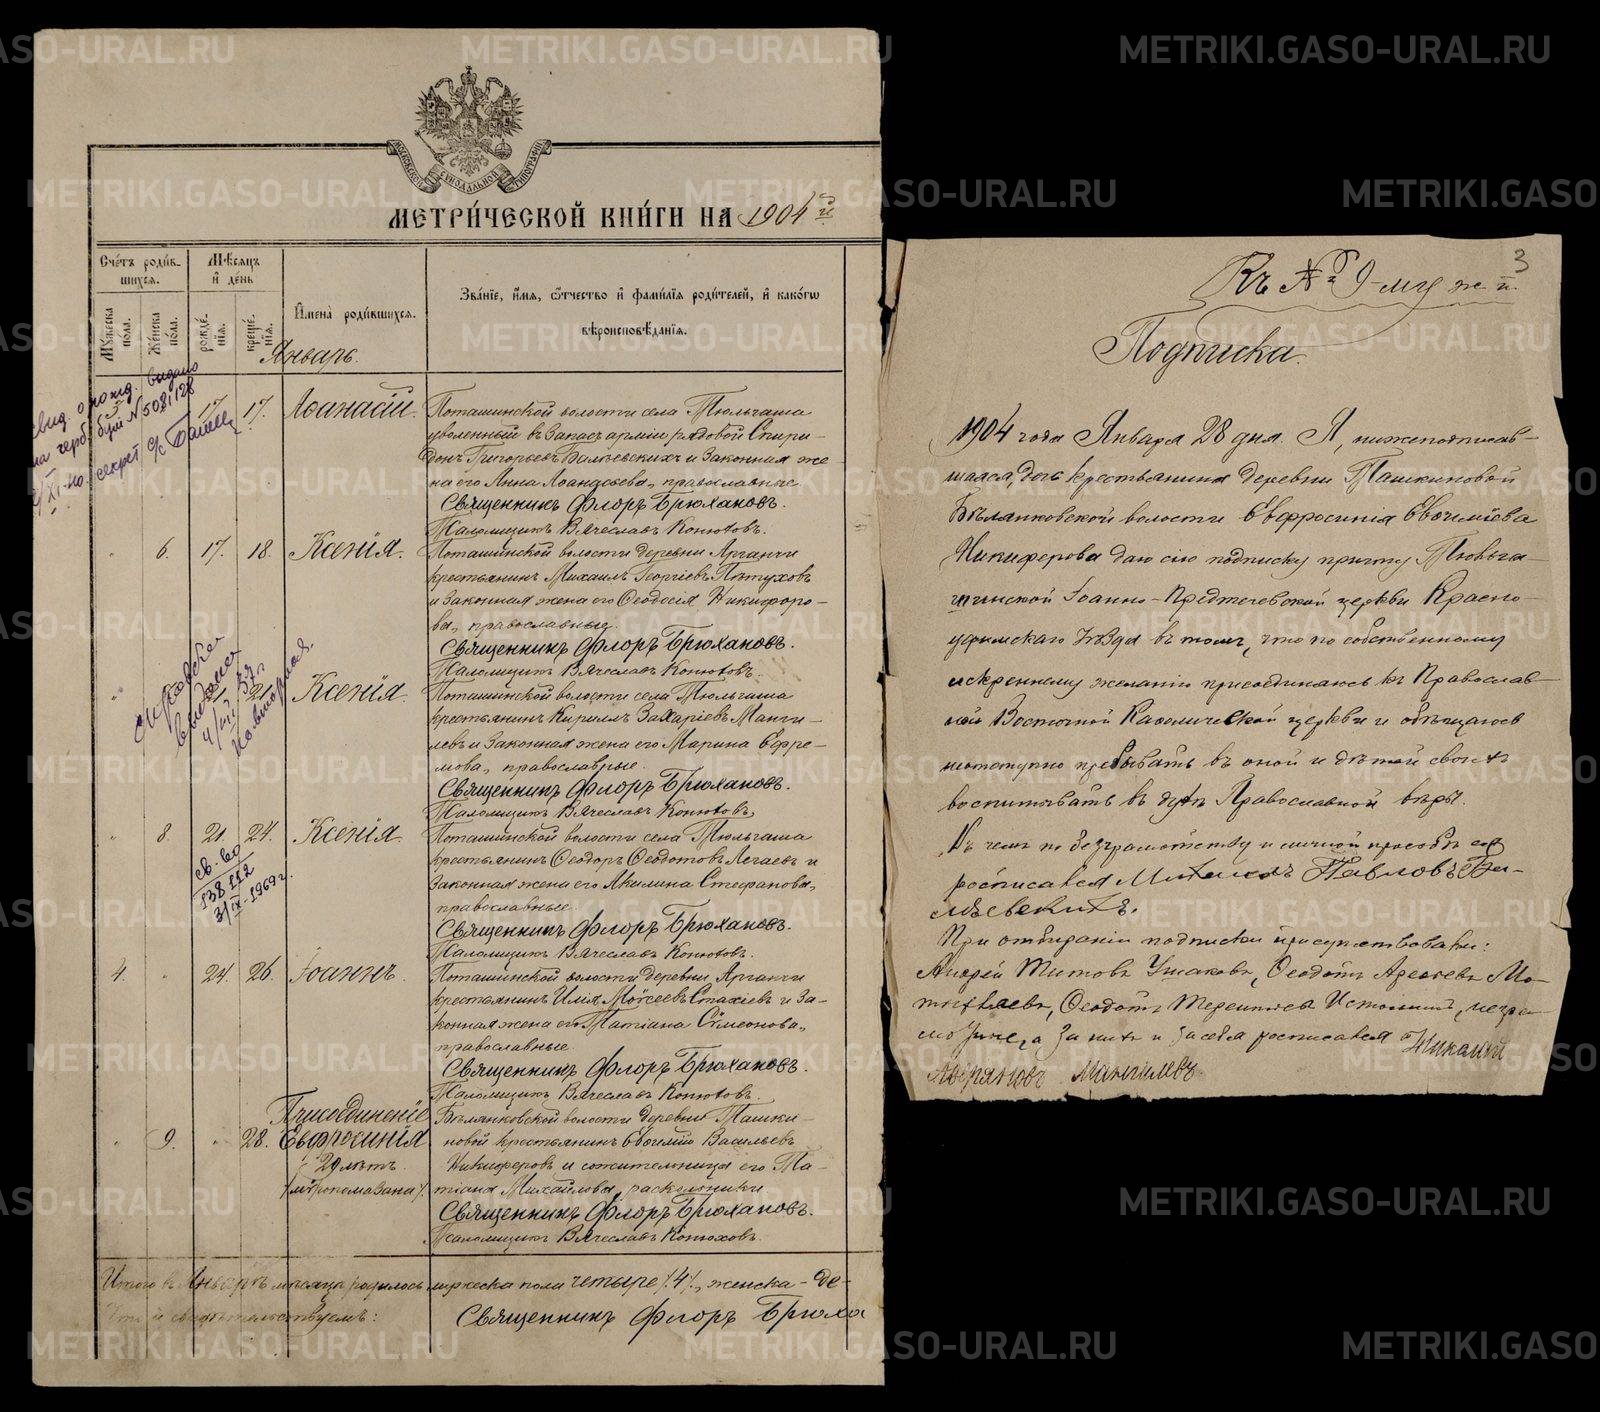 МЕТРИ́ЧЕСКОЙ КНИ́ГИ НА 1904й
Сче́тъ роди́в-
шихся.
Мꙋ́жеска
по́ла.
Же́нска
по́ла.
Мѣ́сяцъ
и҆ де́нь
рожде́-
нія.
креще́-
нія.
И҆мена̀ роди́вшихся.
Зва́ніе, и҆́мя, ѻ҆́тчество и҆ фами́лія роди́телей, и҆ како́гѡ
вѣроисповѣ́данія.
Январь.
17. 17. Аѳанасій. Поташинской волости села Тюльгаша
уволенный въ запасъ арміи рядовой Спири-
донъ Григорьевъ Балѣевскихъ и законная же-
на его Анна Аѳанасьева, православные
Священникъ Флоръ Брюхановъ.
Псаломщикъ Вячеславъ Конюховъ.
" 6. 17. 18. Ксенія. Поташинской волости деревни Арганчи
крестьянинъ Михаилъ Георгіевъ Пѣтуховъ
и законная жена его Ѳеодосія Никифоро-
ва, православные.
Священникъ Флоръ Брюхановъ.
Псаломщикъ Вячеславъ Конюховъ.
" 21. Ксенія. Поташинской волости села Тюльгаша
крестьянинъ Кириллъ Захаріевъ Манги-
левъ и законная жена его Марина Ефре-
мова, православные.
Священникъ Флоръ Брюхановъ.
Псаломщикъ Вячеславъ Конюховъ.
" 8. 21. 24. Ксенія. Поташинской волости села Тюльгаша
крестьянинъ Ѳеодоръ Ѳеодотовъ Легаевъ и
законная жена его Акилина Стефанова,
православные.
Священникъ Флоръ Брюхановъ.
Псаломщикъ Вячеславъ Конюховъ.
св-во
138112
3/IX-1969 г.
4. " 24. 26. Іоаннъ. Поташинской волости деревни Арганчи
крестьянинъ Илія Моѵсеевъ Стахѣевъ и за-
конная жена его Татіана Сѵмеонова,
православные
Священникъ Флоръ Брюхановъ.
Псаломщикъ Вячеславъ Конюховъ.
Присоединеніе
" 9. " 28. Евфросинія
20 лѣтъ.
/мѵропомазана/.
Бѣлянковской волости деревни Ташки-
новой крестьянинъ Евѳимій Васильевъ
Никиферовъ и сожительница его Та-
тіана Михайлова, раскольники
Священникъ Флоръ Брюхановъ.
Псаломщикъ Вячеславъ Конюховъ.
Итого въ Январѣ мѣсяцѣ родилось мужеска пола четыре /4/, женска - де-
Что и свидѣтельствуемъ: Священникъ Флоръ Брюха
свид. о рожд. выдано
на герб. бум № 5081128
секрет с/с
выдана
повторная.
3
Къ № 9-му ж. п.
Подписка.
1904 года Января 28 дня. Я, нижеподписав-
шаяся, дочь крестьянина деревни Ташкиновой
Бѣлянковской волости Евфросинія Евѳимѣева
Никиферова даю сію подписку причту Тюльга-
шинской Іоанно-Предтечевской церкви Красно-
уфимскаго Уѣзда въ томъ, что по собственному
искреннему желанію присоединяюсь къ Православ-
ной Восточной Каѳолической церкви и обѣщаюсь
неотступно пребывать въ оной и дѣтей своихъ
воспитывать въ духѣ Православной вѣры.
Въ чемъ по безграмотству и личной просьбѣ ея
росписался Михаилъ Павловъ Ба-
лѣевскихъ.
При отбираніи подписки присутствовали:
Андрей Титовъ Ушаковъ, Ѳеодотъ
Ѳеодотъ Терентьевъ
за нихъ и за себя росписался Николай
Мангилевъ